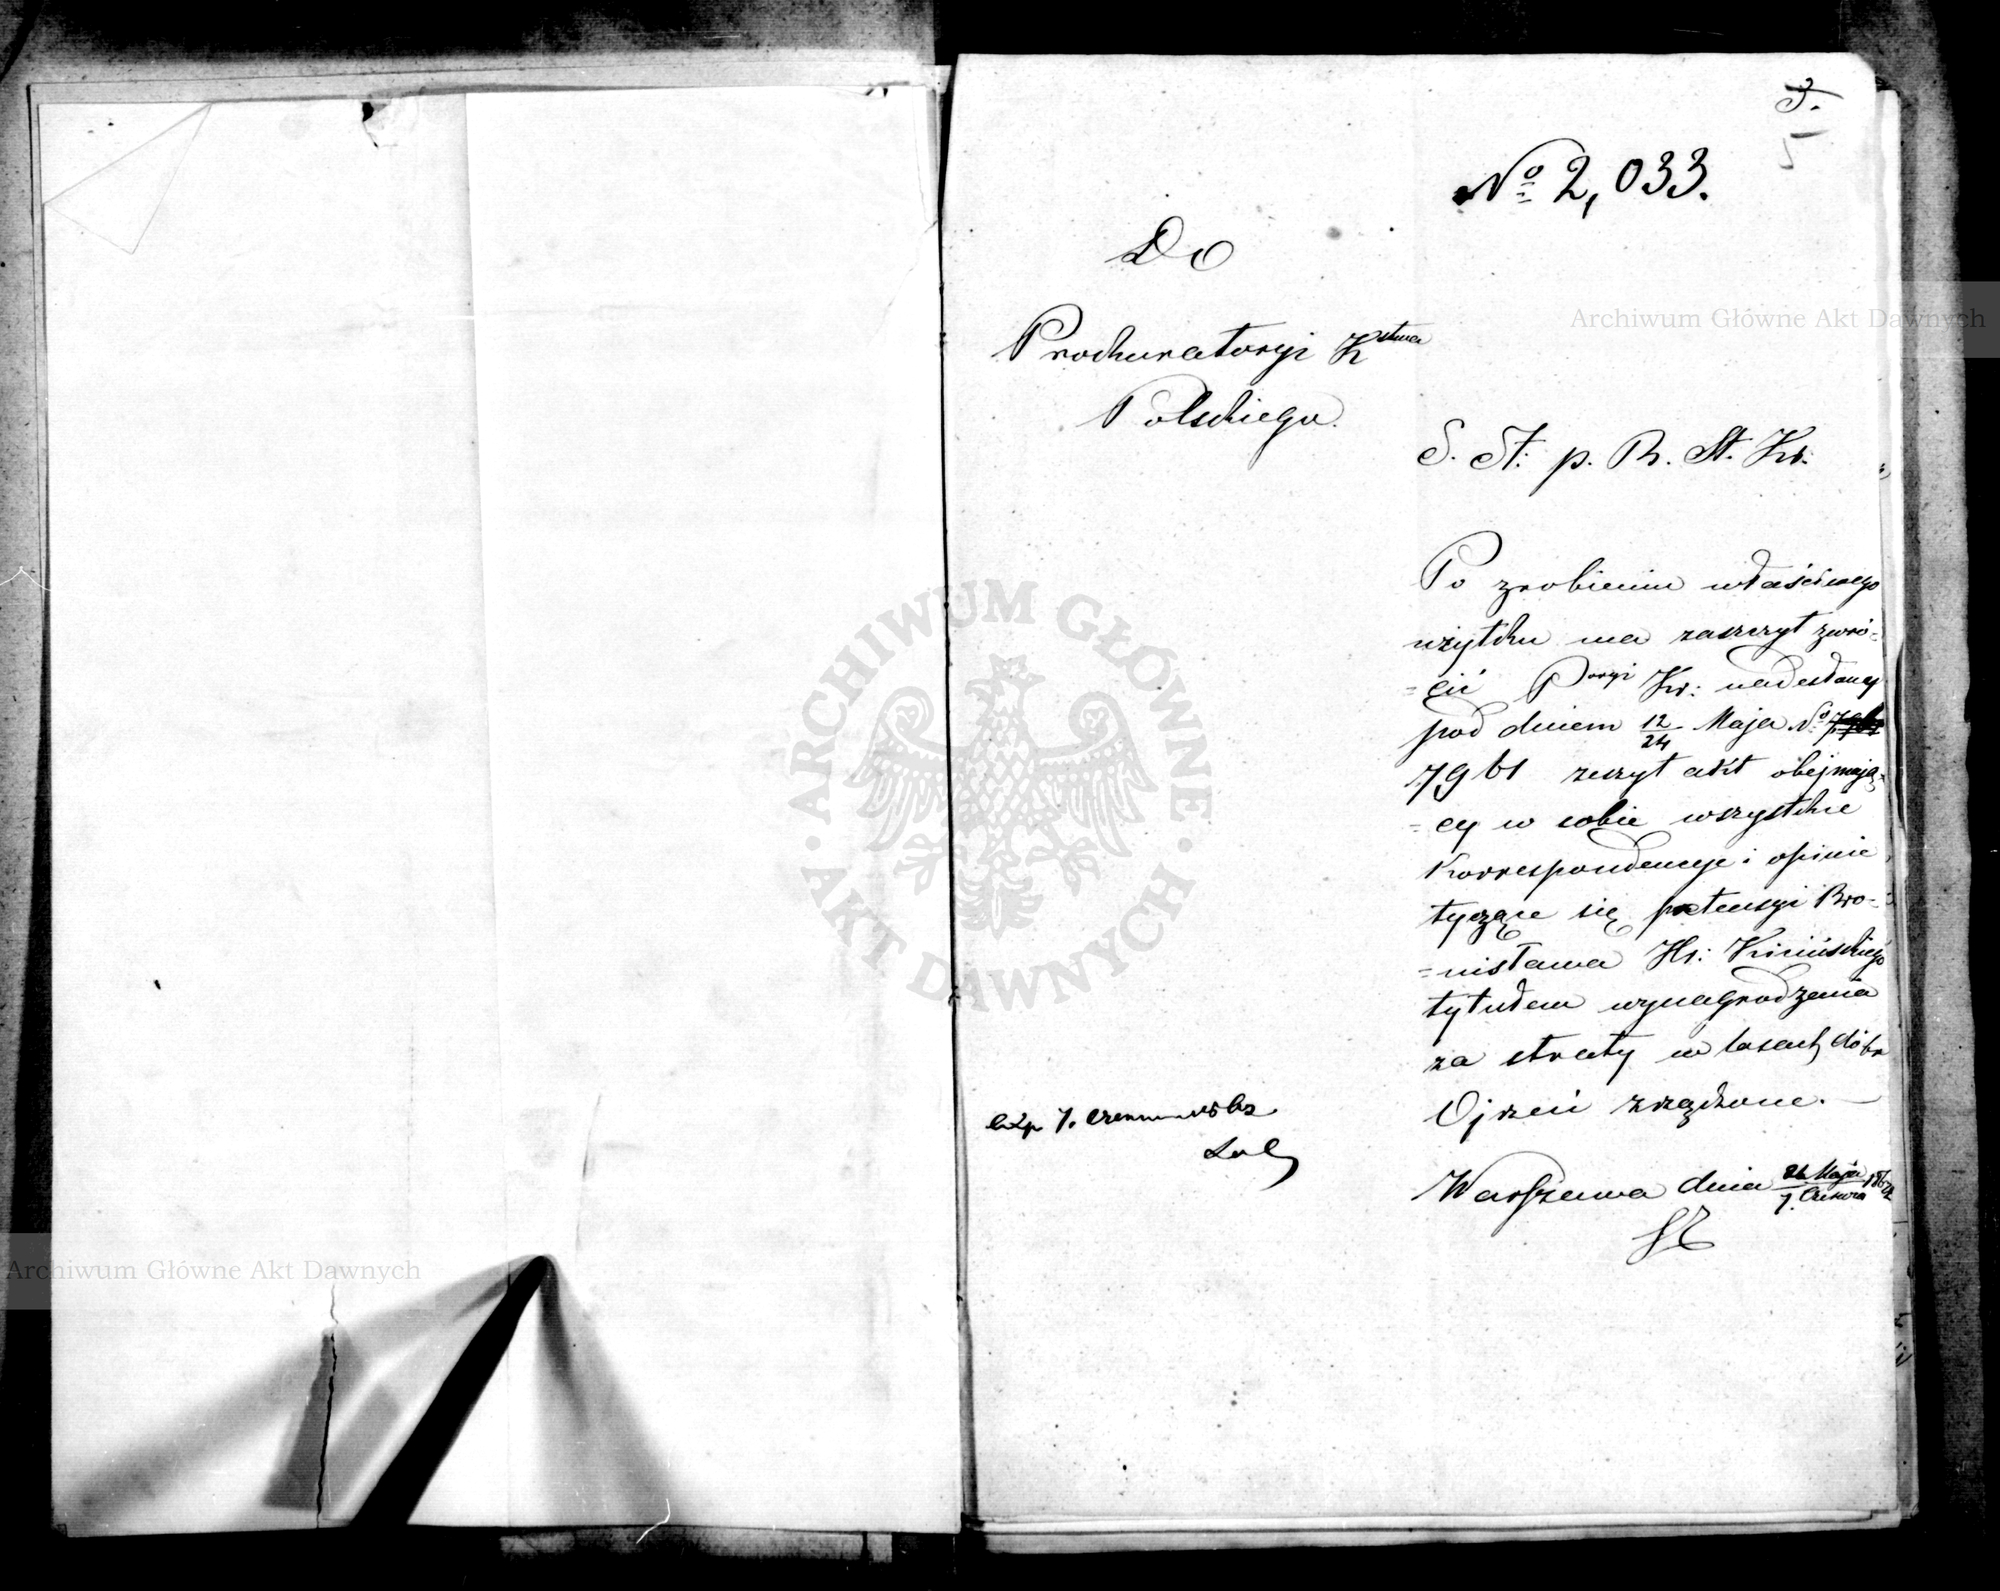 3.
5
No 2,033.
Do
Prokuratoryi K stwa
Polskiego.
S. St: p. R. St. Kr.
Po zrobieniu właściwego
użytku ma zaszczyt zwró=
=cić P oryi Kr: nadesłany
pod dniem 12/24 Maja No
7961 zeszyt akt obejmują=
=cy w sobie wszystkie
Korrespondencye i opinie
tyczące się pretensyi Bro=
=nisława Hr: Kicińskiego
tytułem wynagrodzenia
za straty w lasach dóbr
Ojrzeń zrządzone. —
Exp 7. Czerwca
Warszawa dnia 26 Maja/7. Czerwca 186
Archiwum Główne Akt Dawnych
Archiwum Główne Akt Dawnych
ARCHIWUM GŁÓWNE · AKT DAWNYCH ·